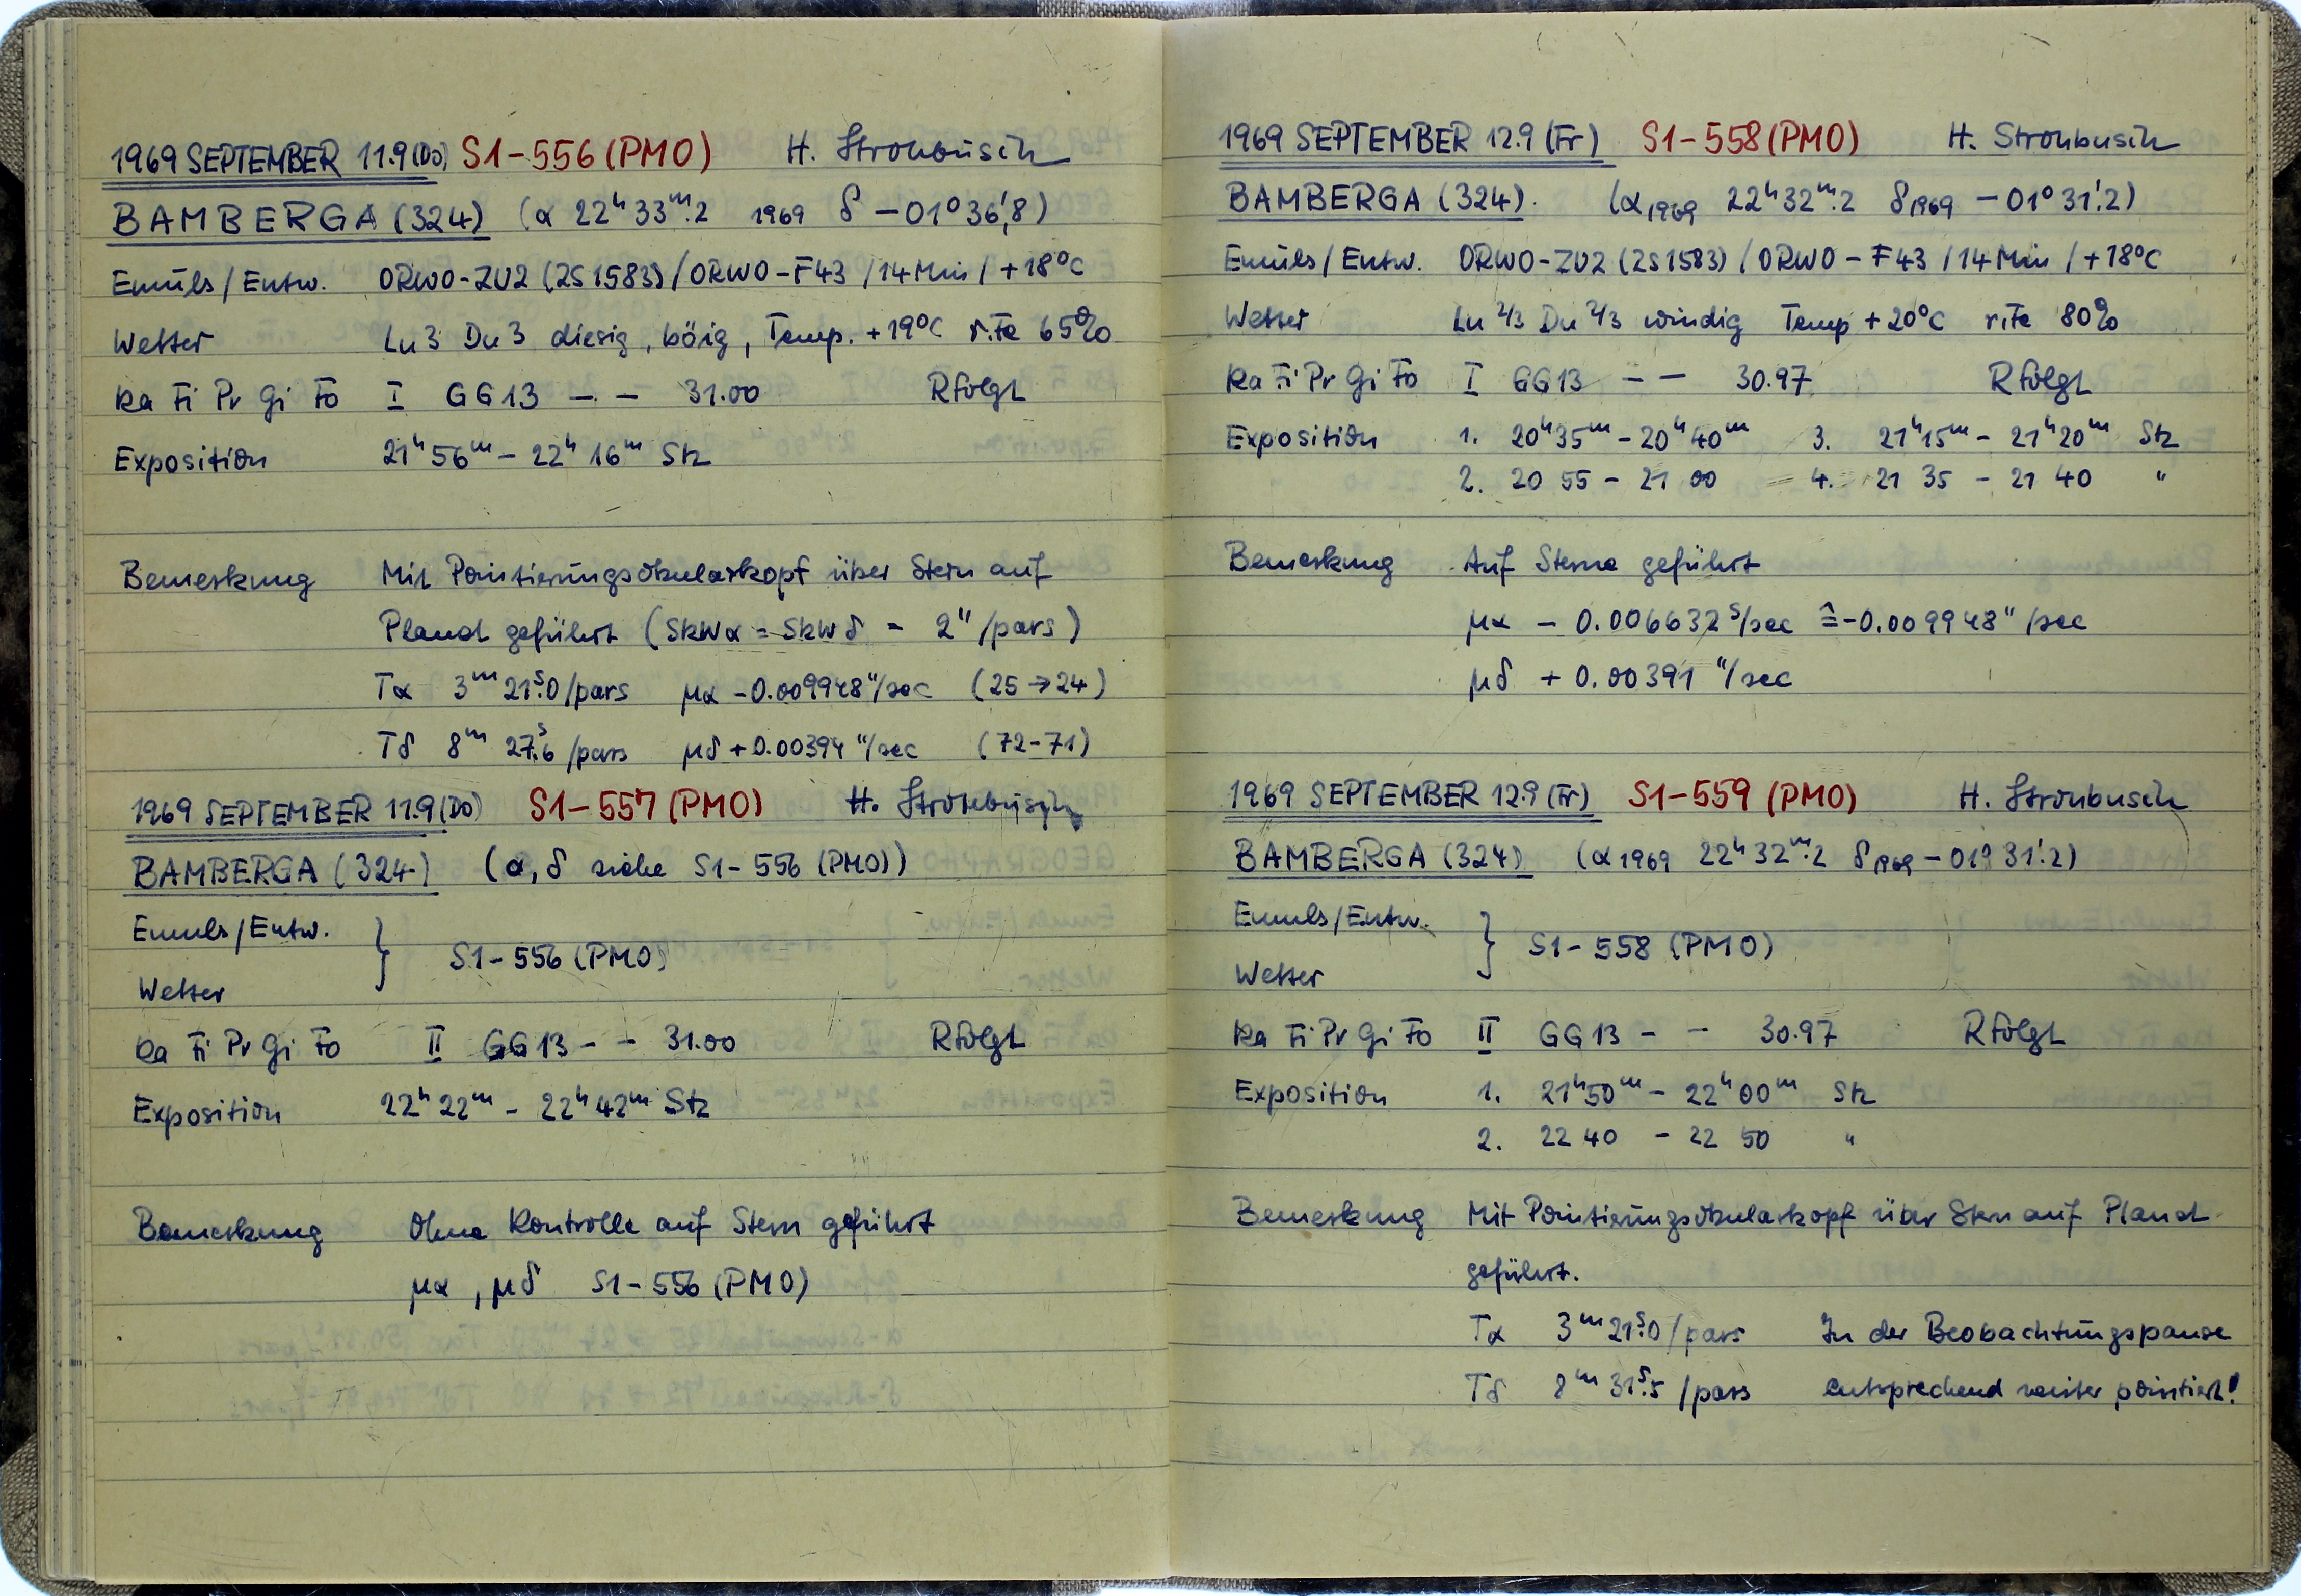 1969 SEPTEMBER 11.9 (Do) S1-556 (PMO) H. Strohbusch
BAMBERGA (324) (α 22ʰ 33ᵐ.2 1969 δ −01° 36',8)
Emuls/Entw. ORWO-ZU2 (ZS 1583) / ORWO-F43 / 14 Min / +18°C
Wetter Lu 3 Du 3 diesig, böig, Temp. +19°C r.Fe 65%
Ka Fi Pr Gi Fo I GG13 – – 31.00 RfolgL
Exposition 21ʰ 56ᵐ – 22ʰ 16ᵐ Stz
Bemerkung Mit Pointierungsokularkopf über Stern auf
Planet geführt (Skwα = Skwδ = 2"/pars)
Tα 3ᵐ 21ˢ.0/pars μα −0.009948"/sec (25→24)
Tδ 8ᵐ 27ˢ.6/pars μδ +0.00394"/sec (72-71)
1969 SEPTEMBER 11.9 (Do) S1-557 (PMO) H. Strohbusch
BAMBERGA (324) (α, δ siehe S1-556 (PMO))
Emuls/Entw. } S1-556 (PMO)
Wetter
Ka Fi Pr Gi Fo II GG13 – – 31.00 RfolgL
Exposition 22ʰ 22ᵐ – 22ʰ 42ᵐ Stz
Bemerkung Ohne Kontrolle auf Stern geführt
μα, μδ S1-556 (PMO)
1969 SEPTEMBER 12.9 (Fr) S1-558 (PMO) H. Strohbusch
BAMBERGA (324). (α1969 22ʰ 32ᵐ.2 δ1969 −01° 31'.2)
Emuls/Entw. ORWO-ZU2 (ZS 1583) / ORWO-F43 / 14 Min / +18°C
Wetter Lu 2/3 Du 2/3 windig Temp +20°C r.Fe 80%
Ka Fi Pr Gi Fo I GG13 – – 30.97 RfolgL
Exposition 1. 20ʰ35ᵐ – 20ʰ40ᵐ 3. 21ʰ15ᵐ – 21ʰ20ᵐ Stz
2. 20 55 – 21 00 4. 21 35 – 21 40 "
Bemerkung Auf Sterne geführt
μα − 0.006632ˢ/sec ≙ −0.009948"/sec
μδ + 0.00391 "/sec
1969 SEPTEMBER 12.9 (Fr) S1-559 (PMO) H. Strohbusch
BAMBERGA (324) (α1969 22ʰ 32ᵐ.2 δ1969 −01° 31'.2)
Emuls/Entw. } S1-558 (PMO)
Wetter
Ka Fi Pr Gi Fo II GG13 – – 30.97 RfolgL
Exposition 1. 21ʰ50ᵐ – 22ʰ00ᵐ Stz
2. 22 40 – 22 50 "
Bemerkung Mit Pointierungsokularkopf über Stern auf Planet
geführt.
Tα 3ᵐ 21ˢ.0/pars In der Beobachtungspause
Tδ 8ᵐ 31ˢ.5/pars entsprechend weiter pointiert!